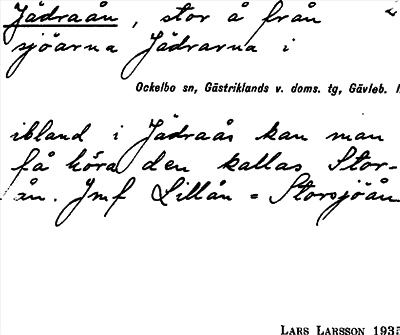 Jädraån, stor å från
sjöarna Jädrarna i
Ockelbo sn, Gästriklands v. doms. tg, Gävleb.
ibland i Jädraås kan man
få höra den kallas Stor-
ån. Jmf Lillån = Storsjöån
LARS LARSSON 1935